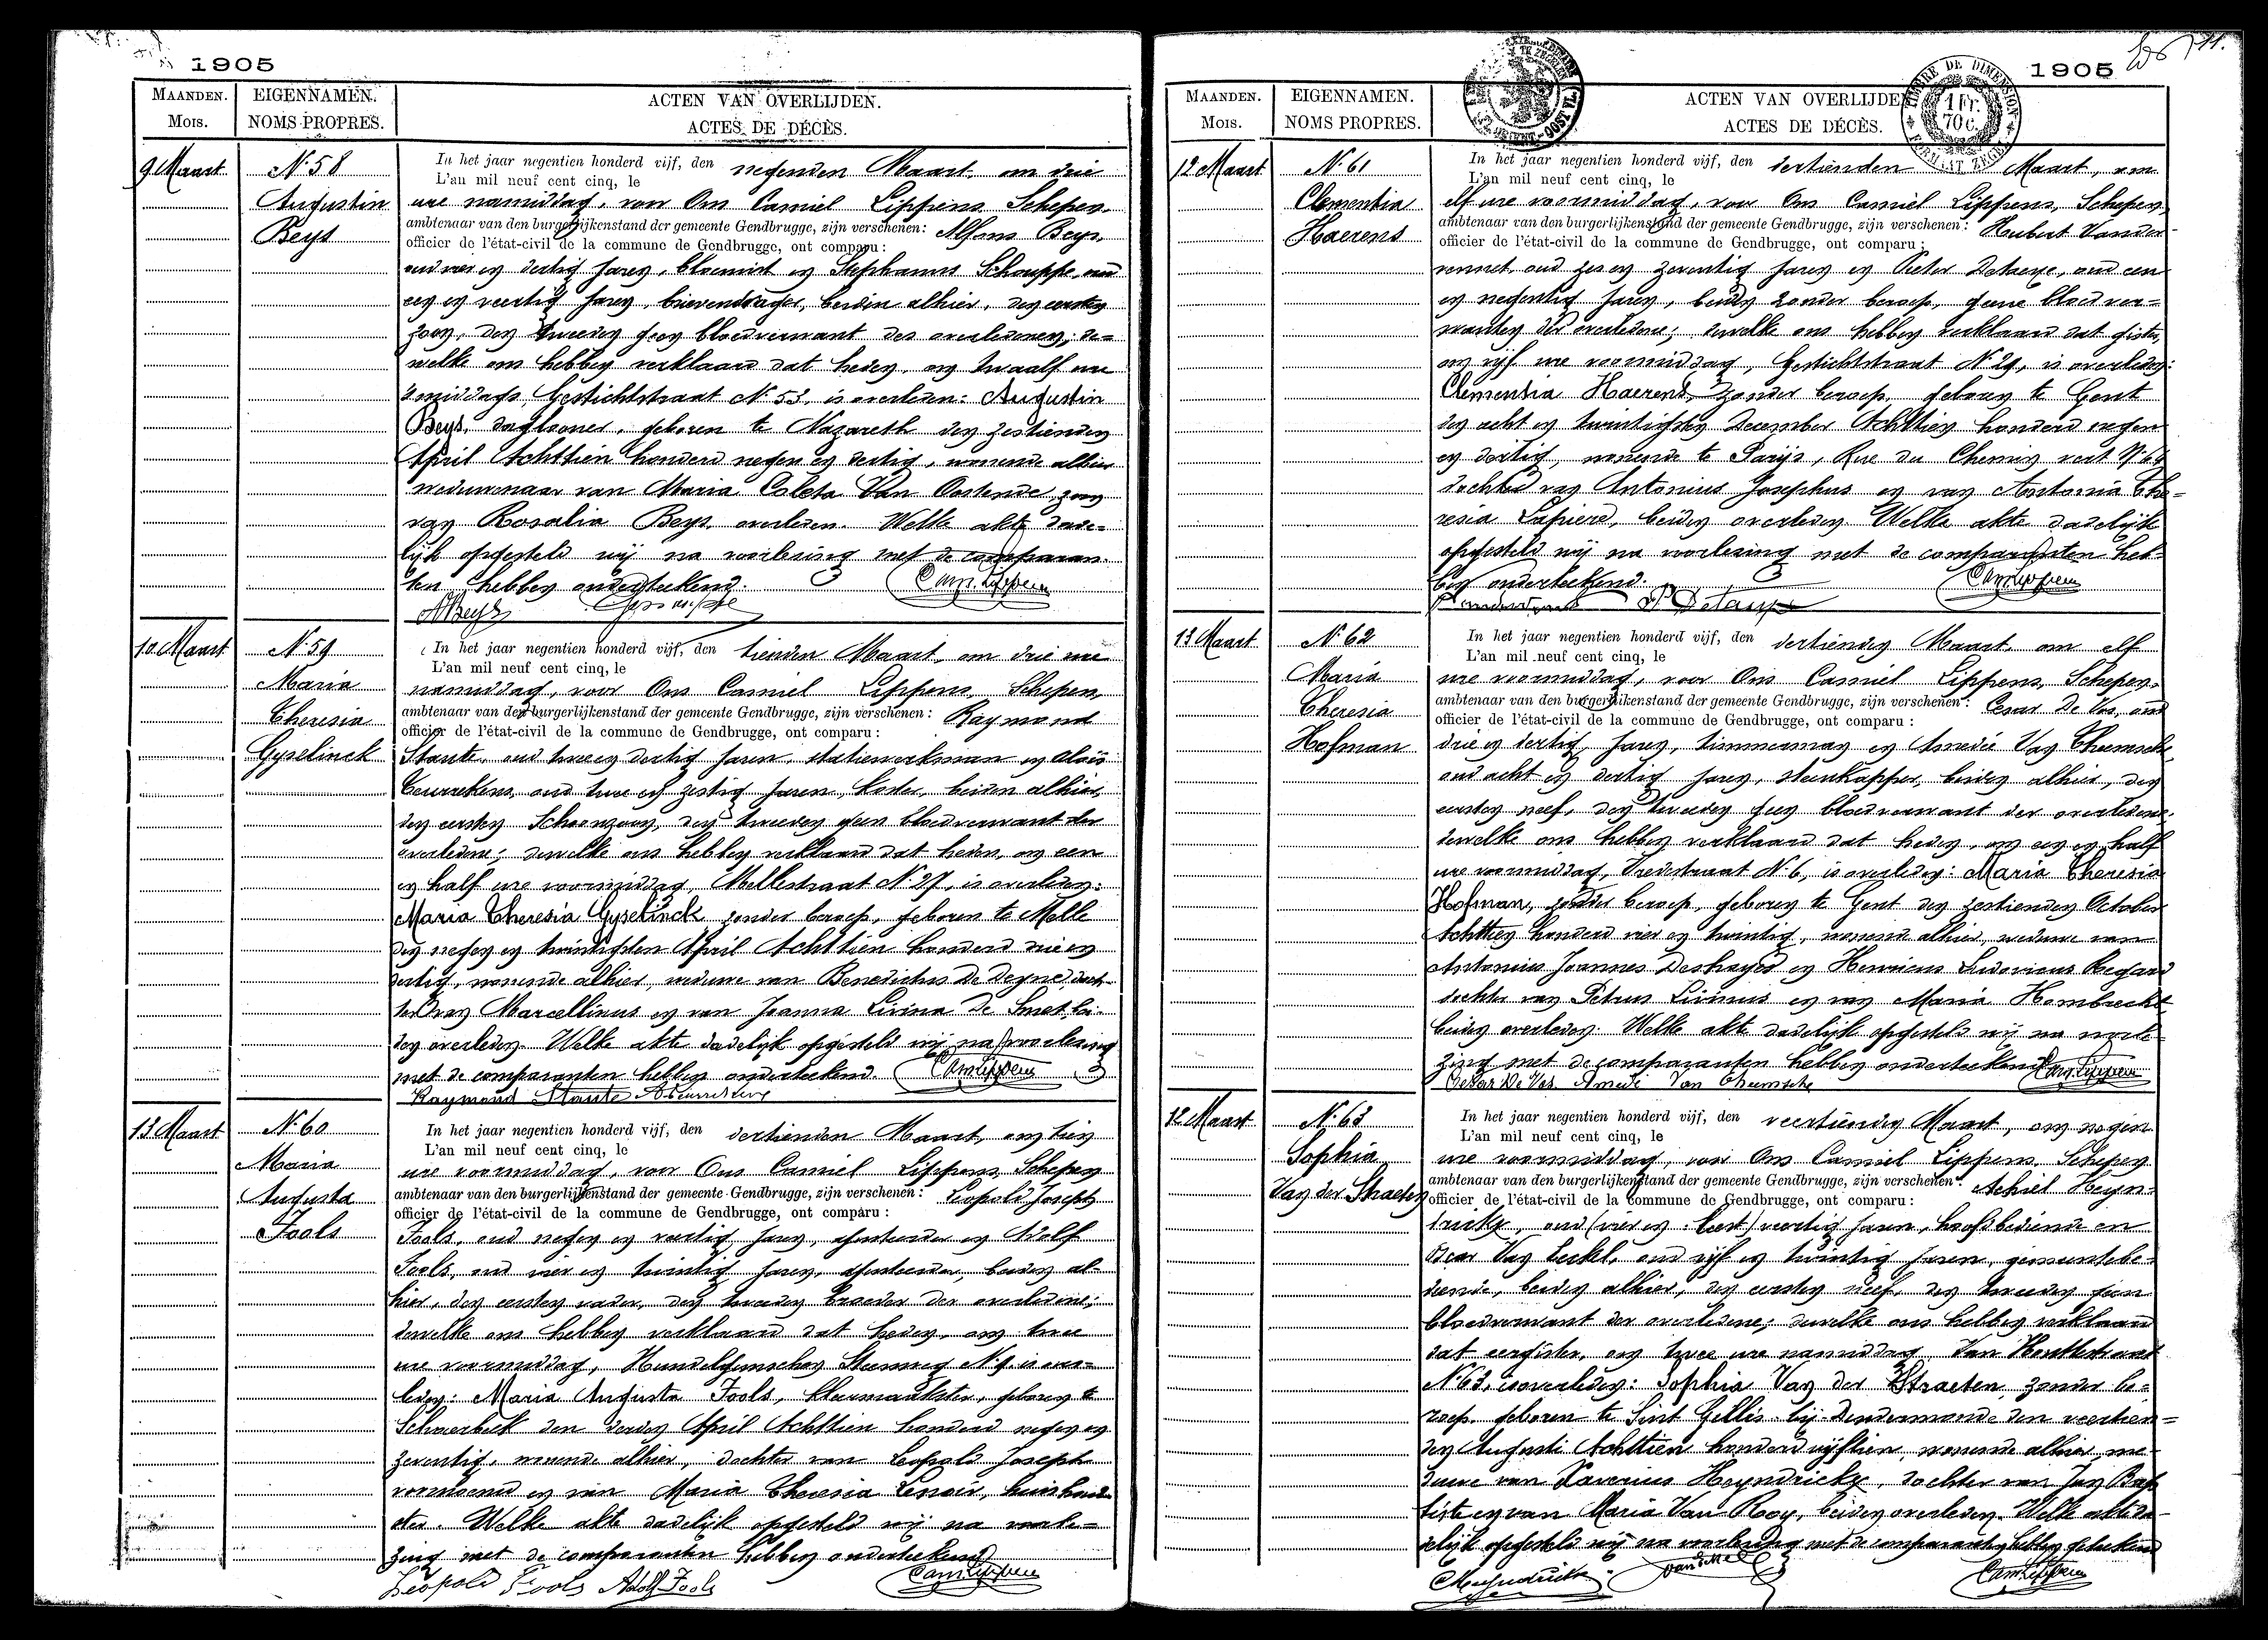 1905
MAANDEN. EIGENNAMEN. ACTEN VAN OVERLIJDEN.
MOIS. NOMS PROPRES. ACTES DE DÉCÈS.
9 Maart N. 58 In het jaar negentien honderd vijf, den negenden Maart om drie
L'an mil neuf cent cinq, le
Augustin ure namiddag, voor Ons Camiel Lippens Schepen
Beys ambtenaar van den burgerlijkenstand der gemeente Gendbrugge, zijn verschenen: Alfons Beys
officier de l'état-civil de la commune de Gendbrugge, ont comparu:
oud vier en dertig jaren, bloemist en Stephanus Schouppe oud
een en veertig jaren, brievendrager, beiden alhier, den eersten
zoon, den tweeden geen bloedverwant des overledenen; de-
welke ons hebben verklaard dat heden, om twaalf ure
's middags, Gestichtstraat N. 53, is overleden: Augustin
Beys, daglooner, geboren te Nazareth den zestienden
April Achttien honderd negen en dertig, wonende alhier
weduwenaar van Maria Coleta Van Oostende, zoon
van Rosalia Beys overleden. Welke akte dade-
lijk opgesteld wij na voorlezing met de comparan-
ten hebben onderteekend. Cam. Lippens
ABeys
10 Maart N. 59 In het jaar negentien honderd vijf, den tienden Maart, om drie ure
L'an mil neuf cent cinq, le
Maria namiddag, voor Ons Camiel Lippens, Schepen,
Theresia ambtenaar van den burgerlijkenstand der gemeente Gendbrugge, zijn verschenen: Raymond
officier de l'état-civil de la commune de Gendbrugge, ont comparu:
Gyselinck Staute, oud twee en dertig jaren, statiewerkman en Aloïs
oud twee en zestig jaren, koster, beiden alhier,
den eersten Schoonzoon, den tweeden geen bloedverwant der
overledene; dewelke ons hebben verklaard dat heden, om een
en half ure voormiddag, Mellestraat N. 27, is overleden:
Maria Theresia Gyselinck zonder beroep, geboren te Melle
den negen en twintigsten April Achttien honderd drie en
dertig, wonende alhier, weduwe van Benedictus De Deyne, doch-
ter van Marcellinus en van Joanna Livina De Smet, bei-
den overleden. Welke akte dadelijk opgesteld wij na voorlezing
met de comparanten hebben onderteekend. Cam Lippens
Raymond Staute
13 Maart N. 60 In het jaar negentien honderd vijf, den dertienden Maart, om tien
L'an mil neuf cent cinq, le
Maria ure voormiddag, voor Ons Camiel Lippens Schepen
Augusta ambtenaar van den burgerlijkenstand der gemeente Gendbrugge, zijn verschenen: Leopold Joseph
officier de l'état-civil de la commune de Gendbrugge, ont comparu:
Fools Fools, oud negen en veertig jaren, en Adolf
Fools, oud vier en twintig jaren, beiden al-
hier, den eersten vader, den tweeden broeder der overledene;
dewelke ons hebben verklaard dat heden, om twee
ure voormiddag, Steenweg N. 9, is over-
leden: Maria Augusta Fools, kleermaakster, geboren te
Schaerbeek den derden April Achttien honderd negen en
zeventig, wonende alhier, dochter van Leopold Joseph
voornoemd en van Maria Theresia Lenoir, huishoud-
ster. Welke akte dadelijk opgesteld wij na voorle-
zing met de comparanten hebben onderteekend
Leopold Fools Adolf Fools Cam Lippens
1905 11.
TIMBRE DE DIMENSION 1 Fr. 70 c.
MAANDEN. EIGENNAMEN. ACTEN VAN OVERLIJDEN
MOIS. NOMS PROPRES. ACTES DE DÉCÈS.
12 Maart N. 61 In het jaar negentien honderd vijf, den dertienden Maart, om
L'an mil neuf cent cinq, le
Clementia elf ure voormiddag, voor Ons Camiel Lippens, Schepen,
Haerens ambtenaar van den burgerlijkenstand der gemeente Gendbrugge, zijn verschenen: Hubert Vander-
officier de l'état-civil de la commune de Gendbrugge, ont comparu:
oud zes en zeventig jaren en Pieter Detaeye, oud een
en negentig jaren, beiden zonder beroep, geene bloedver-
wanten der overledene; dewelke ons hebben verklaard dat gister,
om vijf ure voormiddag, Gestichtstraat N. 29, is overleden:
Clementia Haerens, zonder beroep, geboren te Gent
den acht en twintigsten December Achttien honderd negen
en dertig, wonende te Parijs, Rue du Chemin vert N. 64
dochter van Antonius Josephus en van Antonia The-
resia Lapiere, beiden overleden. Welke akte dadelijk
opgesteld wij na voorlezing met de comparanten heb-
ben onderteekend. Cam Lippens
P Detaeye
13 Maart N. 62 In het jaar negentien honderd vijf, den dertienden Maart, om elf
L'an mil neuf cent cinq, le
Maria ure voormiddag, voor Ons Camiel Lippens, Schepen
Theresia ambtenaar van den burgerlijkenstand der gemeente Gendbrugge, zijn verschenen: Cesar De Vos, oud
officier de l'état-civil de la commune de Gendbrugge, ont comparu:
Hofman drie en dertig jaren, timmerman en Amedé Van Themsche,
oud acht en dertig jaren, steenkapper, beiden alhier, den
eersten neef, den tweeden geen bloedverwant der overledene;
dewelke ons hebben verklaard dat heden, om een en half
ure voormiddag, Vredestraat N. 6, is overleden: Maria Theresia
Hofman, zonder beroep, geboren te Gent den zestienden October
Achttien honderd vier en twintig, wonende alhier, weduwe van
Antonius Joannes Deshayes en Henricus Ludovicus Regard
dochter van Petrus Livinus en van Maria Hombrecht
beiden overleden. Welke akte dadelijk opgesteld wij na voorle-
zing met de comparanten hebben onderteekend Cam Lippens
Cesar De Vos Amedé Van Themsche
12 Maart N. 63 In het jaar negentien honderd vijf, den veertienden Maart, om negen
L'an mil neuf cent cinq, le
Sophia ure voormiddag, voor Ons Camiel Lippens, Schepen
Van der Straeten ambtenaar van den burgerlijkenstand der gemeente Gendbrugge, zijn verschenen: Achiel Heyn-
officier de l'état-civil de la commune de Gendbrugge, ont comparu:
drickx, oud vier en veertig jaren, hoofdbediende en
Van oud vijf en twintig jaren, gemeentebe-
diende, beiden alhier, den eersten neef, den tweeden geen
bloedverwant der overledene; dewelke ons hebben verklaard
dat eergister, om twee ure namiddag, Van Houttestraat
N. 63, is overleden: Sophia Van der Straeten, zonder be-
roep, geboren te Sint Gillis bij Dendermonde den veertien-
den Augusti Achttien honderd vijftien, wonende alhier, we-
duwe van Xaverius Heyndrickx, dochter van Jan Bap-
tiste en van Maria Van Rooy, beiden overleden. Welke akte da-
delijk opgesteld wij na voorlezing met de comparanten hebben geteekend
Cam Lippens